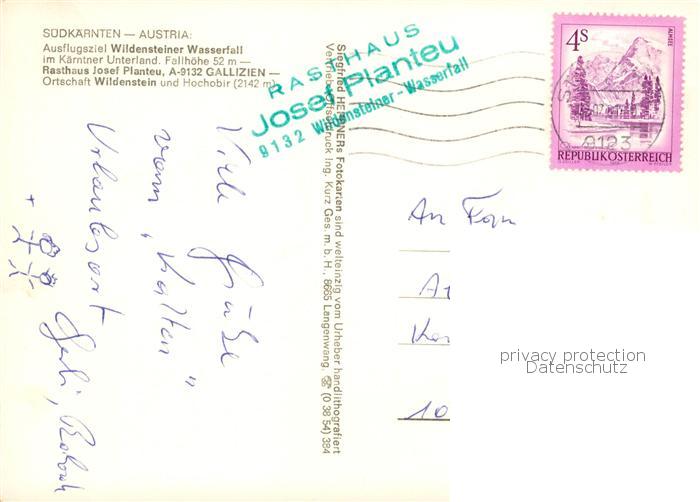 SÜDKÄRNTEN — AUSTRIA:
Ausflugsziel Wildensteiner Wasserfall
im Kärntner Unterland. Fallhöhe 52 m —
Rasthaus Josef Planteu, A-9132 GALLIZIEN —
Ortschaft Wildenstein und Hochobir (2142 m)
RASTHAUS
Josef Planteu
9132 Wildensteiner-Wasserfall
Viele Grüße
vom „kalten"
Urlaubsort
Gerli,
Siegfried Fotokarten sind welteinzig vom Urheber handlithografiert
Ing. Kurz Ges. m. b. H., 8665 Langenwang, ☎ (0 38 54) 384
4S
ALMSEE
9123
REPUBLIK ÖSTERREICH
An Fam
10
privacy protection
Datenschutz